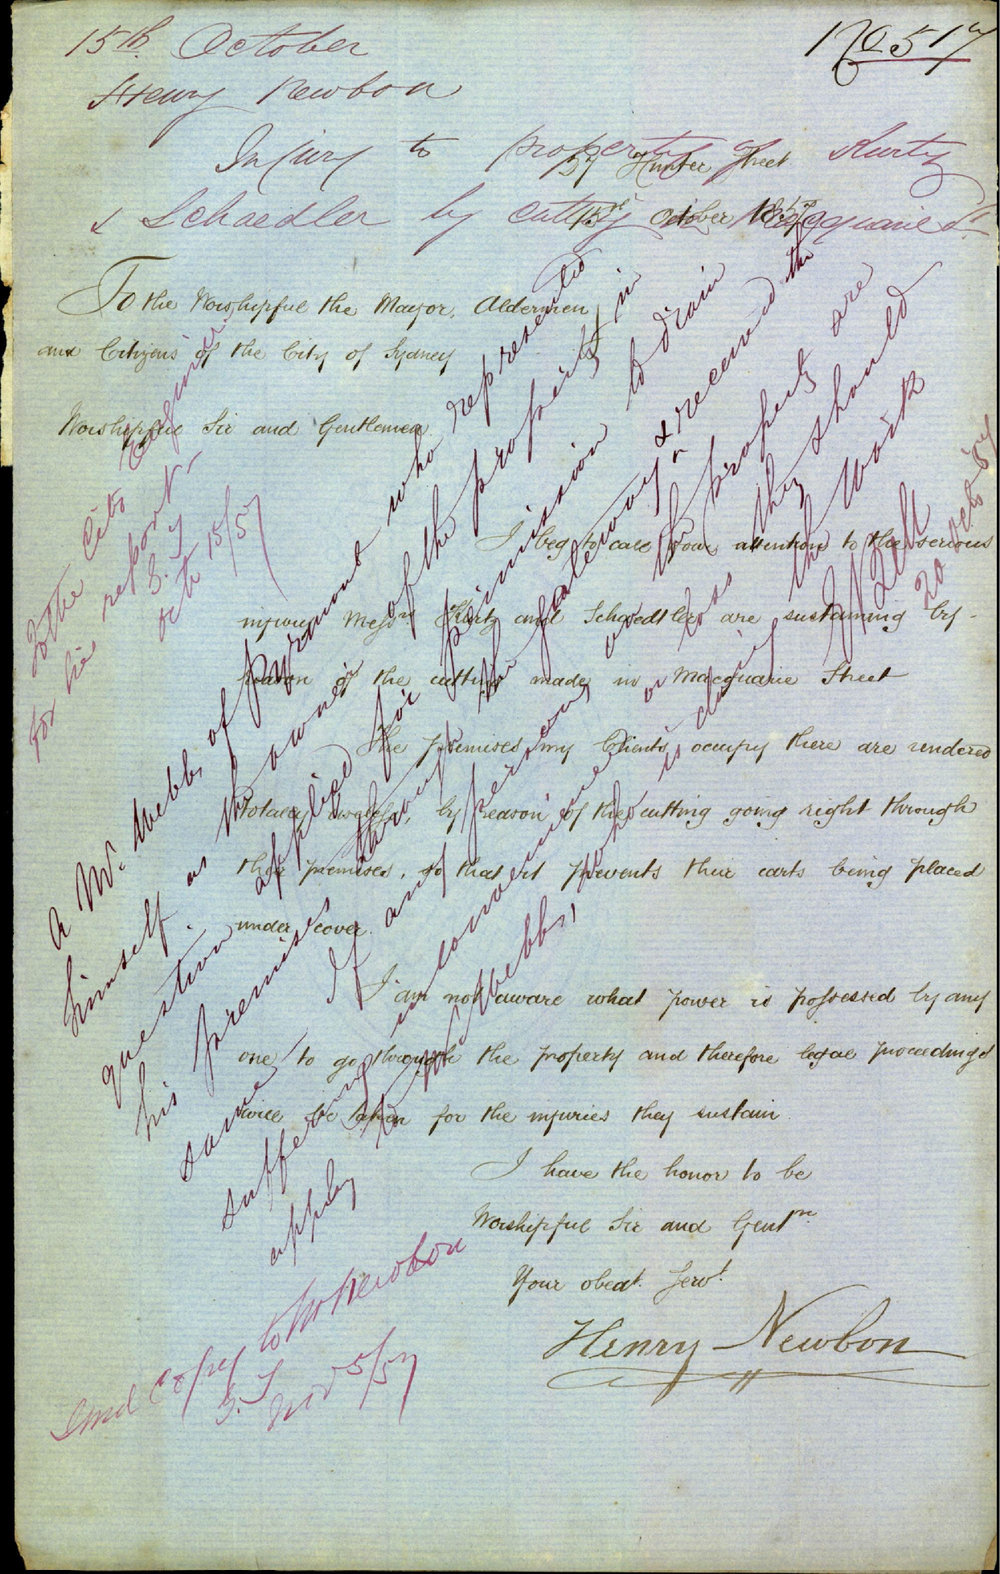 15th October
Henry Newbon
Injury to property of Kurtz
& Schaedler by cutting in Macquarie St.
No 517
57 Hunter Street
15th October 1857
To the Worshipful the Mayor, Aldermen
and Citizens of the City of Sydney
Worshipful Sir and Gentlemen
I beg to call your attention to the serious
injury Messrs Kurtz and Schaedtler are sustaining by
reason of the cutting made in Macquarie Street
The premises my Clients occupy there are rendered
totally useless, by reason of the cutting going right through
their premises, so that it prevents their carts being placed
under cover.
I am not aware what power is possessed by any
one to go through the property and therefore legal proceedings
will be taken for the injuries they sustain
I have the honor to be
Worshipful Sir and Gentn.
Your obedt. Servt.
Henry Newbon
To the City Engineer
for his report
G. T
Oct 15/57
A Mr. Webb, of Pyrmont who represented
himself as the owner of the property in
question applied for permission to drain
his premises through the gateway & received the
same, If any person on the property are
suffering inconvenience or loss they should
apply to Mr Webb, who is doing the work
20 Oct 57
Send Copy to Mr Newbon
G. T
Nov 5/57